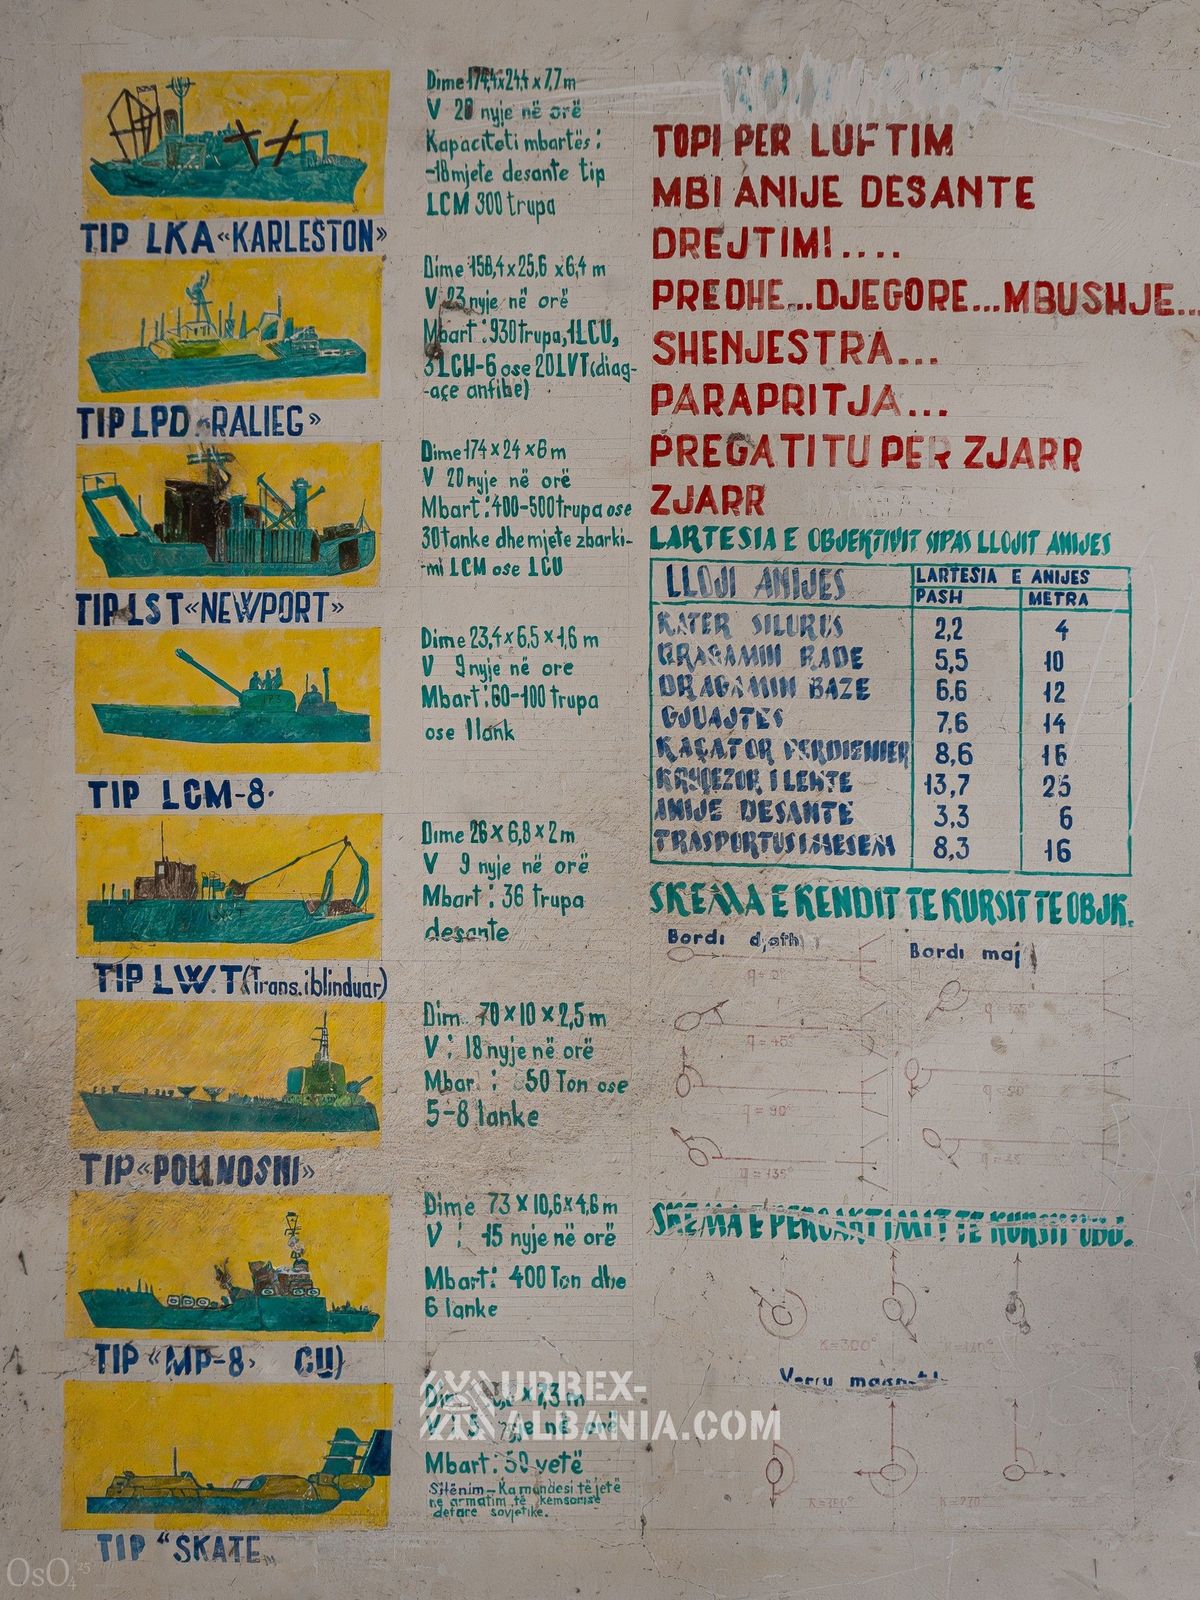 Dime 174,4x24,4 x 7,7 m
V 20 nyje në orë
Kapaciteti mbartës:
-18 mjete desante tip
LCM 300 trupa
TIP LKA «KARLESTON»
Dime 158,4 x 25,6 x 6,4 m
V 23 nyje në orë
Mbart: 930 trupa, 1LCU,
3 LCH-6 ose 20 LVT (diag-
-açe anfibe)
TIP LPD «RALIEG»
Dime 174 x 24 x 6 m
V 20 nyje në orë
Mbart: 400-500 trupa ose
30 tanke dhe mjete zbarki-
-mi LCM ose LCU
TIP LST «NEWPORT»
Dime 23,4 x 6,5 x 1,6 m
V 9 nyje në ore
Mbart: 60-100 trupa
ose 1 tank
TIP LCM-8.
Dime 26 x 6,8 x 2 m
V 9 nyje në orë
Mbart: 36 trupa
desante
TIP LW.T (Trans. i blinduar)
Dim.. 70 x 10 x 2,5 m
V: 18 nyje në orë
Mbar : 50 Ton ose
5-8 tanke
TIP «POLLNOSNI»
Dime 73 x 10,6 x 4,6 m
V : 15 nyje në orë
Mbart: 400 Ton dhe
6 tanke
TIP «MP-8» CU)
x 7,3 m
Mbart: 50 vetë
Shënim - Ka mundesi të jetë
ne armatim të kemsorise
detare sovjetike.
TIP "SKATE„
TOPI PER LUFTIM
MBI ANIJE DESANTE
DREJTIMI....
PREDHE...DJEGORE...MBUSHJE...
SHENJESTRA...
PARAPRITJA...
PREGATITU PER ZJARR
ZJARR
LARTESIA E OBJEKTIVIT SIPAS LLOJIT ANIJES
LLOJI ANIJES LARTESIA E ANIJES
PASH METRA
KATER SILURUS 2,2 4
DRAGAMIN RADE 5,5 10
DRAGAMIN BAZE 6,6 12
GJUAJTES 7,6 14
KAÇATOR PERDIENIER 8,6 16
KRYQEZOR I LEHTE 13,7 25
ANIJE DESANTE 3,3 6
TRASPORTUS I MESEM 8,3 16
SKEMA E KENDIT TE KURSIT TE OBJK.
Bordi djatht Bordi maj
q = 0°
q = 45°
q = 90°
q = 135°
SKEMA E PERCAKTIMIT TE KURSIT OBJ.
K=300°
K=180°
K=270
URBEX-
ALBANIA.COM
OsO4 25